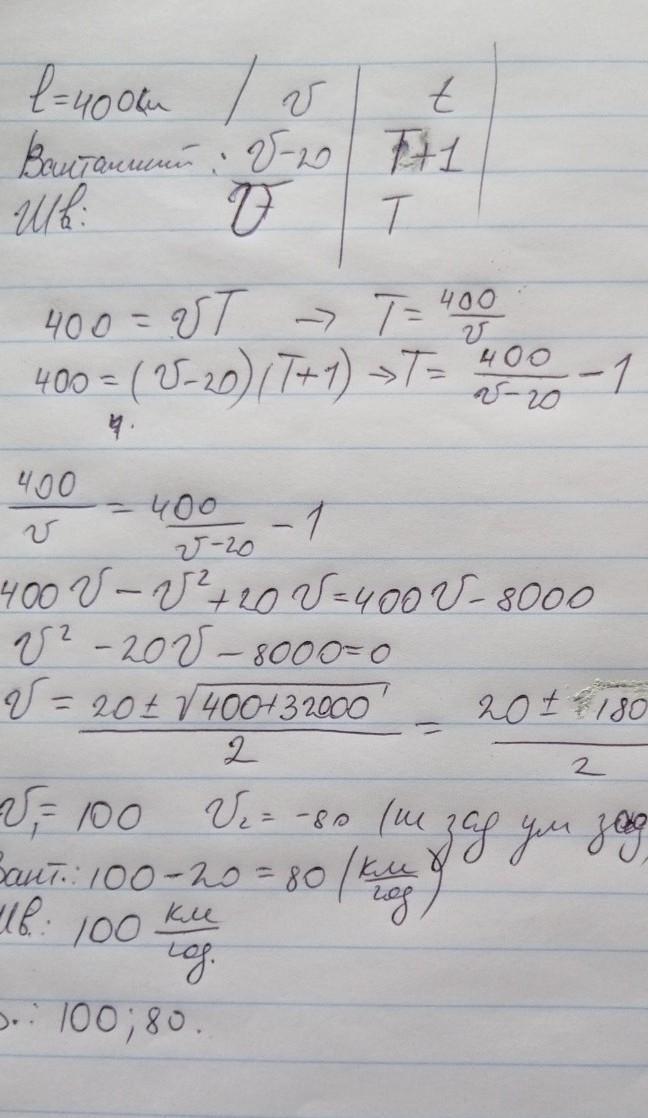 l=400км / v | t
Вантажний: v-20 | T+1
Шв: v | T
400 = vT → T = 400/v
400 = (v-20)(T+1) → T = 400/(v-20) - 1
400/v = 400/(v-20) - 1
400v - v² + 20v = 400v - 8000
v² - 20v - 8000 = 0
v = (20 ± √(400+32000))/2 = (20 ± 180)/2
v₁ = 100 v₂ = -80 (не зад ум зад
Вант.: 100 - 20 = 80 (км/год)
Шв.: 100 км/год.
В.: 100; 80.